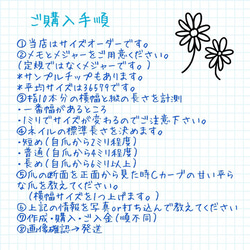 ご購入手順
①当店はサイズオーダーです。
②メモとメジャーをご用意ください。
(定規ではなくメジャーです。)
*サンプルチップもあります。
*平均サイズは36579です。
③指10本分の横幅と縦の長さを計測
・一番幅があるところ
・1ミリでサイズが変わるのでご注意下さい。
④ネイルの標準長さを決めます。
・短め(自爪から2ミリ程度)
・普通(自爪から4ミリ程度)
・長め(自爪から6ミリ以上)
⑤爪の断面を正面から見た時Cカーブの甘い平ら
な爪を教えてください。
(横幅サイズを1つ上げます。)
⑥上記の情報を写真or打ち込んで教えてください
⑦作成・購入・ご入金(順不同)
⑧画像確認→発送